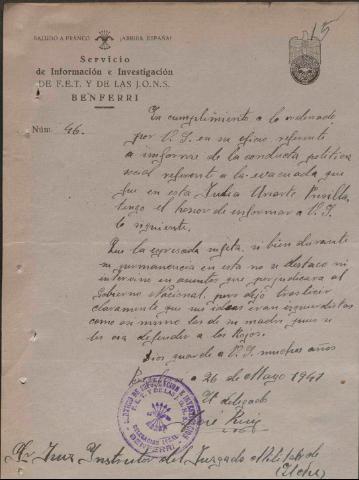 SALUDO A FRANCO ¡ARRIBA ESPAÑA!
15
Servicio
de Información e Investigación
DE F.E.T. Y DE LAS J.O.N.S.
BENFERRI
Núm. 46.
En cumplimiento a lo ordenado
por V. S. en su oficio referente
a informe de la conducta politica
social referente a la evacuada que
fue en esta Julia Uriarte
tengo el honor de informar a V. S.
lo siguiente.
Que la expresada sujeta, si bien durante
su permanencia en esta no se destaco ni
intervino en asuntos que perjudicara al
Gobierno Nacional, pues dejó traslucir
claramente que sus ideas eran izquierdistas
como asi mismo las de su madre, pues
era defender a los Rojos.
Dios guarde a V. S. muchos años
26 de Mayo 1941
El delegado
José Ruiz
SERVICIO DE INFORMACION E INVESTIGACION
F.E.T. Y DE LAS J.O.N.S.
BENFERRI
Sr. Juez Instructor del Juzgado Militar de
(Elche)